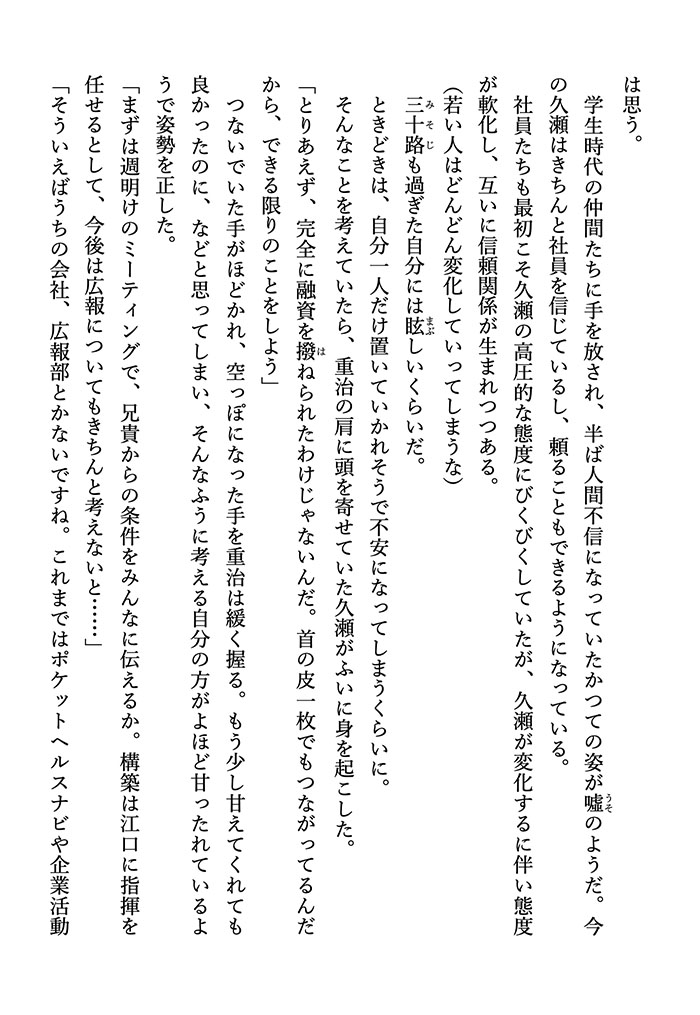 は思う。
　学生時代の仲間たちに手を放され、半ば人間不信になっていたかつての姿が嘘のようだ。今
の久瀬はきちんと社員を信じているし、頼ることもできるようになっている。
　社員たちも最初こそ久瀬の高圧的な態度にびくびくしていたが、久瀬が変化するに伴い態度
が軟化し、互いに信頼関係が生まれつつある。
（若い人はどんどん変化していってしまうな）
　三十路も過ぎた自分には眩しいくらいだ。
　ときどきは、自分一人だけ置いていかれそうで不安になってしまうくらいに。
　そんなことを考えていたら、重治の肩に頭を寄せていた久瀬がふいに身を起こした。
「とりあえず、完全に融資を撥ねられたわけじゃないんだ。首の皮一枚でもつながってるんだ
から、できる限りのことをしよう」
　つないでいた手がほどかれ、空っぽになった手を重治は緩く握る。もう少し甘えてくれても
良かったのに、などと思ってしまい、そんなふうに考える自分の方がよほど甘ったれているよ
うで姿勢を正した。
「まずは週明けのミーティングで、兄貴からの条件をみんなに伝えるか。構築は江口に指揮を
任せるとして、今後は広報についてもきちんと考えないと……」
「そういえばうちの会社、広報部とかないですね。これまではポケットヘルスナビや企業活動